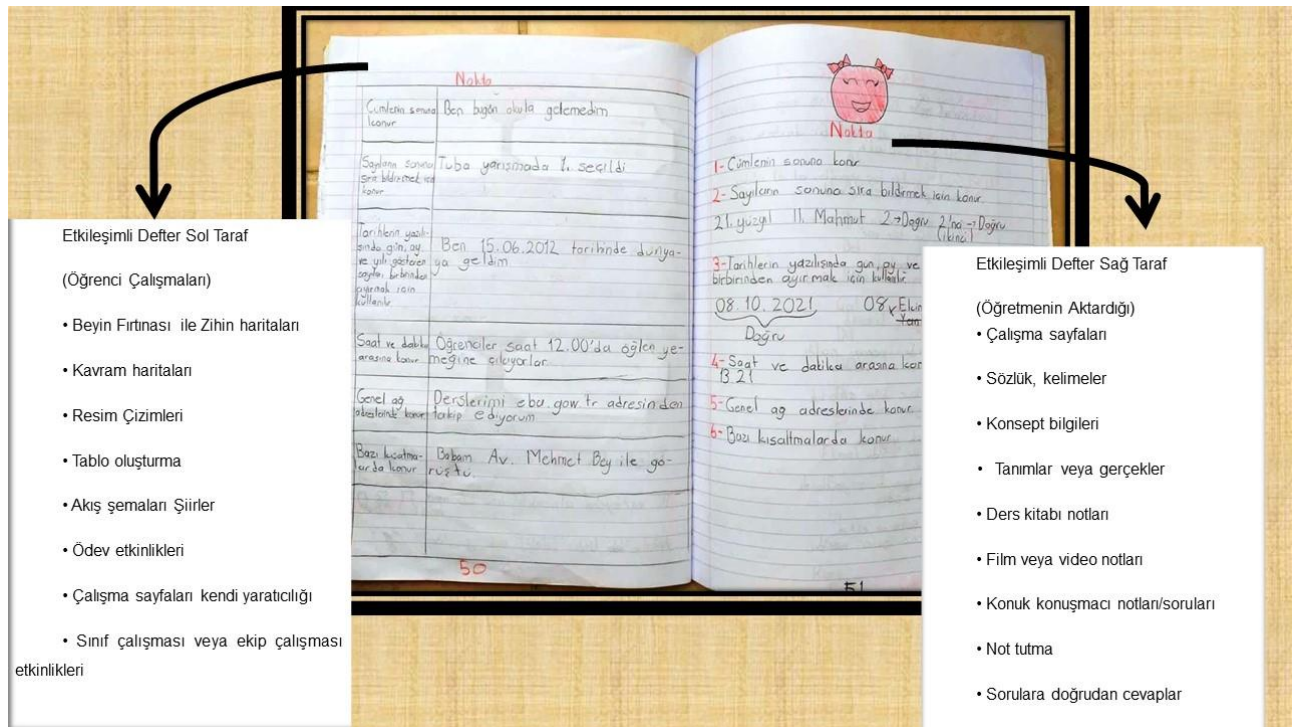 Etkileşimli Defter Sol Taraf
(Öğrenci Çalışmaları)
• Beyin Fırtınası ile Zihin haritaları
• Kavram haritaları
• Resim Çizimleri
• Tablo oluşturma
• Akış şemaları Şiirler
• Ödev etkinlikleri
• Çalışma sayfaları kendi yaratıcılığı
• Sınıf çalışması veya ekip çalışması
etkinlikleri
Nokta
Cümlenin sonuna
konur
Ben bugün okula gelemedim
Sayıların sonuna
sıra bildirmek için
konur
Tuba yarışmada 1. seçildi
Tarihlerin yazılı-
şında gün, ay
ve yılı gösteren
sayıları birbirinden
ayırmak için
kullanılır
Ben 15.06.2012 tarihinde dünya-
ya geldim
Saat ve dakika
arasına konur
Öğrenciler saat 12.00'da öğlen ye-
meğine çıkıyorlar.
Genel ağ
adreslerinde konur
Derslerimi eba.gow.tr adresinden
takip ediyorum
Bazı kısaltma-
larda konur
Babam Av. Mehmet Bey ile gö-
rüştü.
50
Nokta
1- Cümlenin sonuna konur
2- Sayıların sonuna sıra bildirmek için konur.
21. yüzyıl II. Mahmut 2→Doğru 2'na→Doğru
(ikinci)
3- Tarihlerin yazılışında gün, ay ve
birbirinden ayırmak için kullanılır
08.10.2021 08
Doğru
4- Saat ve dakika arasına
13.21
5- Genel ağ adreslerinde konur.
6- Bazı kısaltmalarda konur
51
Etkileşimli Defter Sağ Taraf
(Öğretmenin Aktardığı)
• Çalışma sayfaları
• Sözlük, kelimeler
• Konsept bilgileri
• Tanımlar veya gerçekler
• Ders kitabı notları
• Film veya video notları
• Konuk konuşmacı notları/soruları
• Not tutma
• Sorulara doğrudan cevaplar